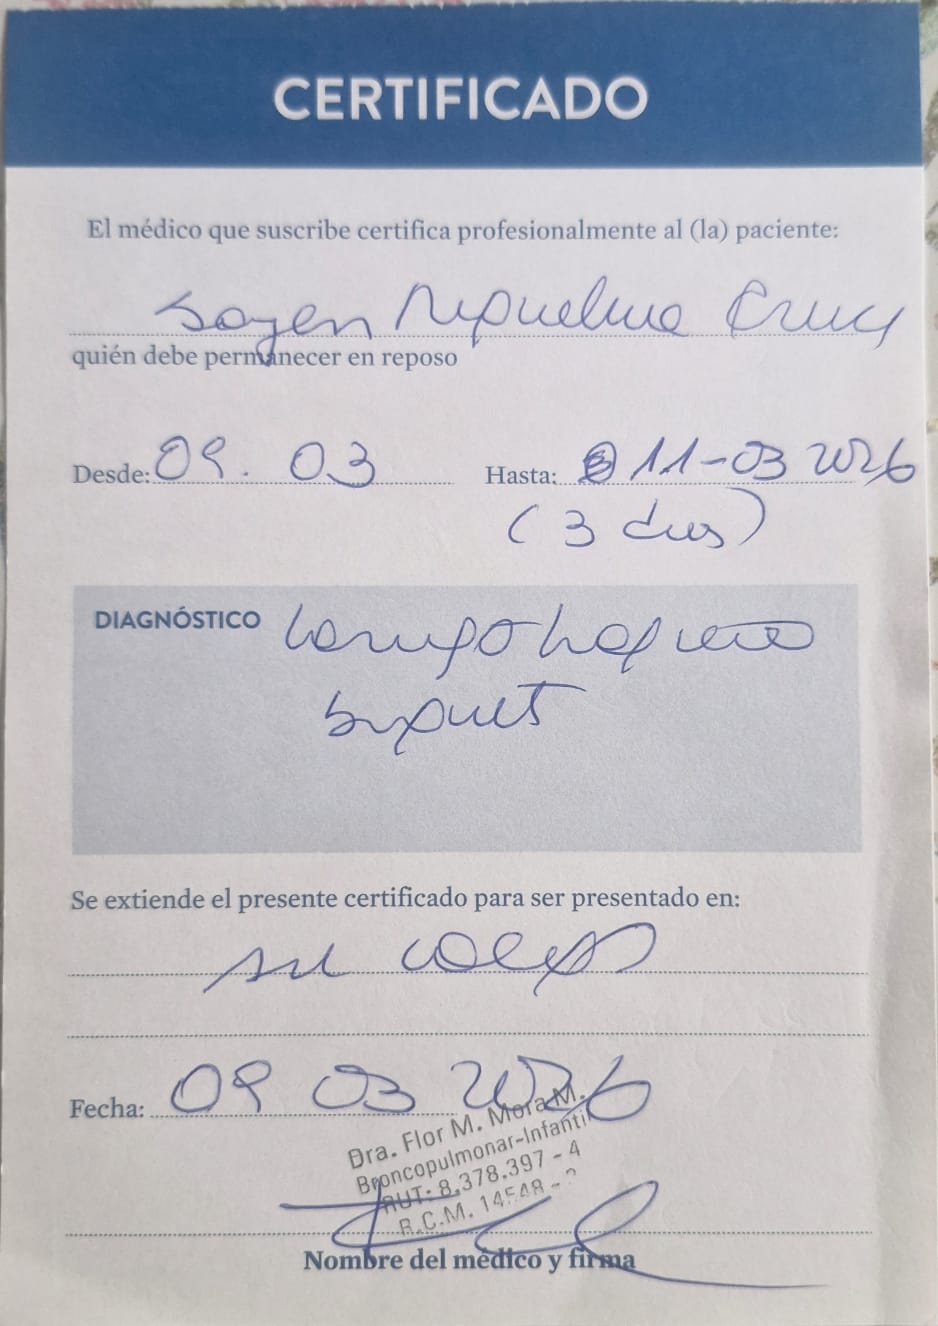 CERTIFICADO
El médico que suscribe certifica profesionalmente al (la) paciente:
Sayen Riquelme Cruz
quién debe permanecer en reposo
Desde: 09. 03 Hasta: 11-03 2026
(3 dias)
DIAGNÓSTICO Laringotraqueitis
Se extiende el presente certificado para ser presentado en:
su colegio
Fecha: 09 03 2026
Dra. Flor M. Mora M.
Broncopulmonar-Infantil
RUT: 8.378.397 - 4
R.C.M. 14548 -
Nombre del médico y firma